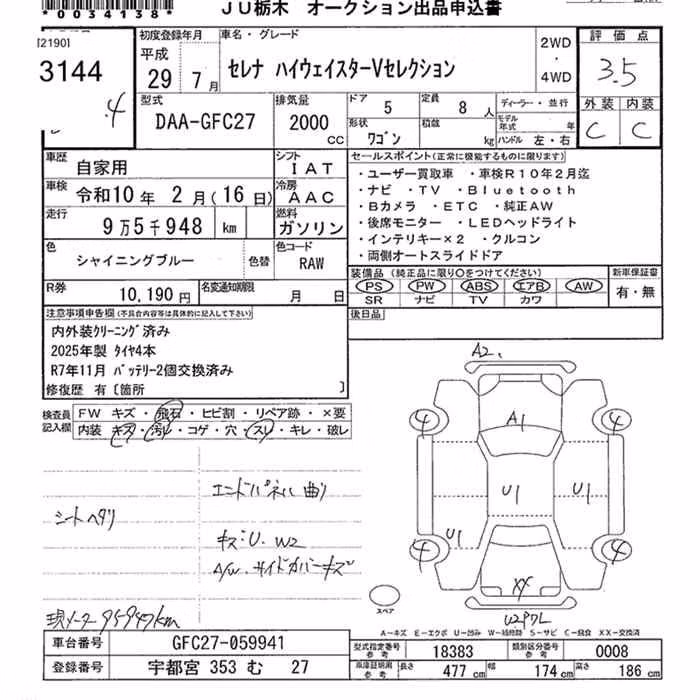 *0034138*
JU栃木 オークション出品申込書
21901
3144
初度登録年月
平成
29年7月
車名・グレード
セレナ ハイウェイスターVセレクション
2WD
・
4WD
評価点
3.5
外装 内装
C C
型式
DAA-GFC27
排気量
2000
CC
ドア
5
定員
8人
形状
ワゴン
積載
kg
ディーラー・並行
モデル年式 年
ハンドル 左・右
車歴
自家用
シフト
IAT
車検
令和10年2月(16日)
冷房
AAC
走行
9万5千948 km
燃料
ガソリン
色
シャイニングブルー
色替
色コード
RAW
R券
10,190円
名変通知期限
月 日
セールスポイント(正常に機能するものに限ります)
・ユーザー買取車 ・車検R10年2月迄
・ナビ ・TV ・Bluetooth
・Bカメラ ・ETC ・純正AW
・後席モニター ・LEDヘッドライト
・インテリキー×2 ・クルコン
・両側オートスライドドア
装備品(純正品に限り○をつけてください)
PS PW ABS エアB AW
SR ナビ TV カワ
新車保証書
有・無
後日品
注意事項申告欄(不具合内容等は具体的に記入して下さい)
内外装クリーニング済み
2025年製 タイヤ4本
R7年11月 バッテリー2個交換済み
修復歴 有〔箇所 〕
検査員
記入欄
FW キズ・飛石・ヒビ割・リペア跡・×要
内装・キズ・汚れ・コゲ・穴・スレ・キレ・破レ
シートヘタリ
エンドパネル曲り
キズ・U・W2
A/W・サイドカバーキズ
現メーター95947km
A2.
A1
4 4
U1 U1
U1
4 4
XX
U2アタL
スペア
A-キズ E-エクボ U-凹み W-補修跡 S-サビ C-腐食 XX-交換済
車台番号
GFC27-059941
登録番号
宇都宮 353 む 27
型式指定番号
参考
18383
類別区分番号
参考
0008
車庫証明用
参考
長さ 477 cm 幅 174 cm 高さ 186 cm